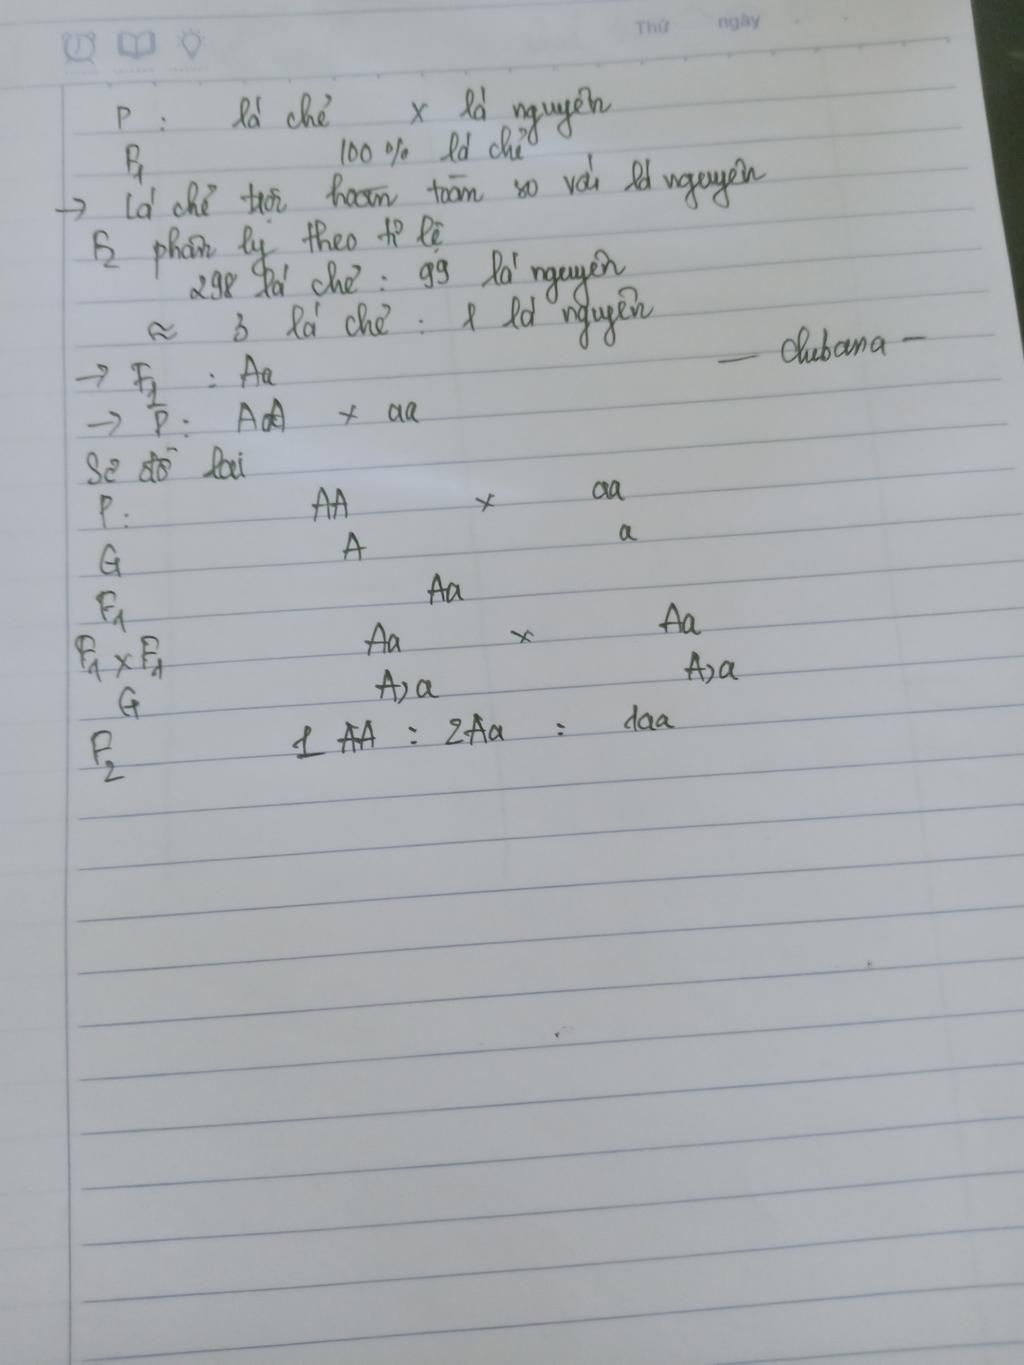 Thứ ngày
P : lá chẻ x lá nguyên
F1 100 % lá chẻ
→ Lá chẻ trội hoàn toàn so với lá nguyên
F2 phân ly theo tỉ lệ
298 lá chẻ : 99 lá nguyên
≈ 3 lá chẻ : 1 lá nguyên
— Chubana —
→ F1 : Aa
→ P : AA x aa
Sơ đồ lai
P : AA x aa
G A a
F1 Aa
F1 x F1 Aa x Aa
G A,a A,a
F2 1 AA : 2Aa : 1aa